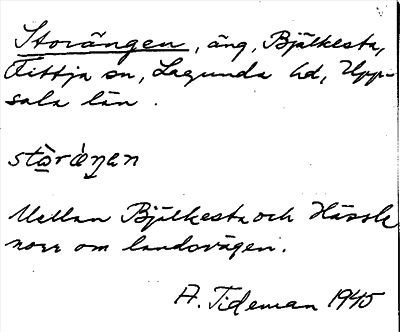 Storängen, äng, Bjälkesta,
Fittja sn, Lagunda hd, Upp-
sala län.
stòráŋen
Mellan Bjälkesta och Hässle
norr om landsvägen.
A. Tideman 1945